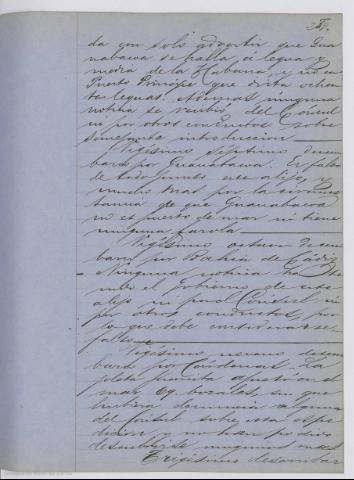 da con solo advertir que Gua
nabacoa se halla a legua y
media de la Habana, y no en
Puerto Principe que dista ochen
ta leguas. Ademas ninguna
noticia se recibio del Consul
ni por otros conductos sobre
semejante introduccion.
Vigésimo septimo desem
barco por Guanabacoa. Es falso
de todo punto este alijo, y
mucho mas por la circuns
tancia de que Guanabacoa
no es puerto de mar ni tiene
ninguna farola.
Vigésimo octavo desem
barco por Bahia de Cadiz
Ninguna noticia ha
el Gobierno de este
alijo ni por el Consul ni
por otros conductos, por
lo que debe considerarse
falso.
Vigésimo noveno desem
barco por Cárdenas. La
goleta
mas 69 bozales, sin que
hubiera denuncia alguna
del Consul sobre esta espe
dicion, ni han podido
descubrirse ningunos mas.
Trigésimo desembar